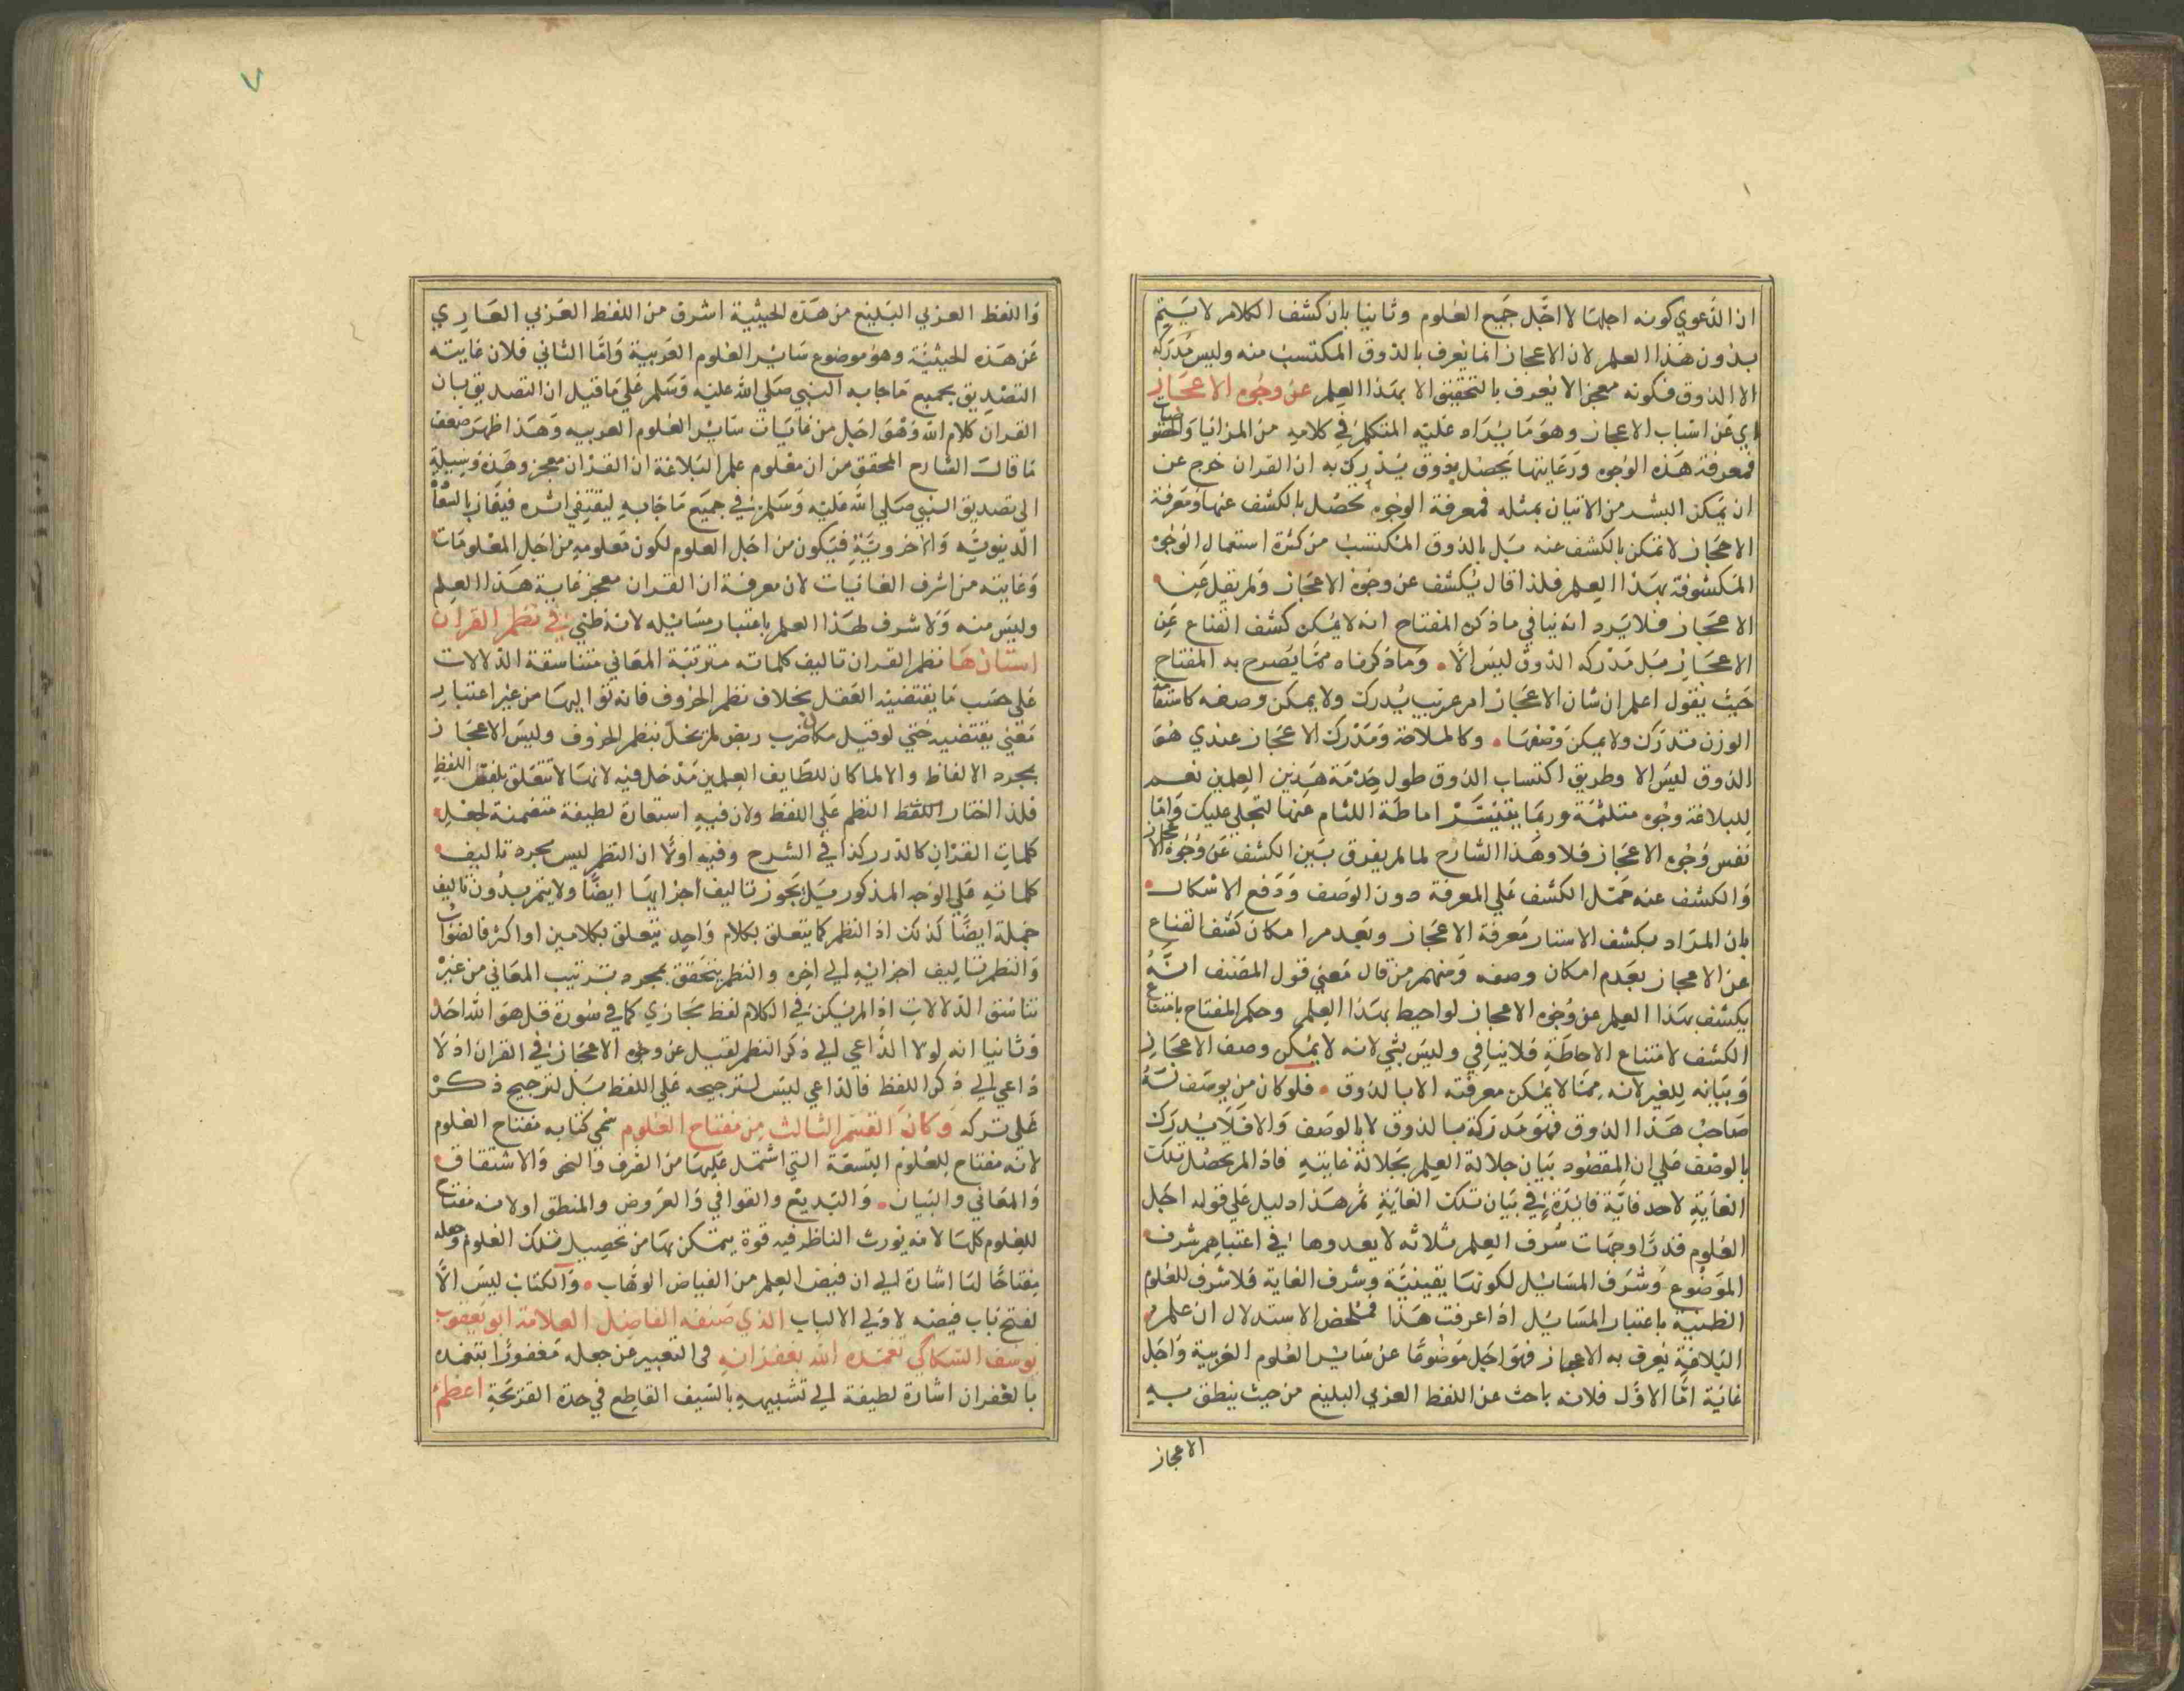 ان الدعوي كونه اجلها لا اجل جميع العلوم وثانيا بان كشف الكلام لا يتم
بدون هذا العلم لان الاعجاز انما يعرف بالذوق المكتسب منه وليس مدركه
الا الذوق فكونه معجزا لا يعرف بالتحقيق الا بهذا العلم عن وجوه الاعجاز
اي عن اسباب الاعجاز وهو ما يراه عليه المتكلم في كلامه من المزايا والخصوصيات
فمعرفة هذه الوجوه ورعايتها يحصل بذوق يدرك به ان القران خرج عن
ان يمكن البشر من الاتيان بمثله فمعرفة الوجوه تحصل بالكشف عنها ومعرفة
الاعجاز لا تمكن بالكشف عنه بل بالذوق المكتسب من كثرة استعمال الوجوه
المكشوفة بهذا العلم فلذا قال يكشف عن وجوه الاعجاز ولم يقل عن
الاعجاز فلا يرد انه ينافي ما ذكره المفتاح انه لا يمكن كشف القناع عن
الاعجاز بل مدركه الذوق ليس الا وما ذكرناه مما يصرح به المفتاح
حيث يقول اعلم ان شان الاعجاز امر عجيب يدرك ولا يمكن وصفه كاستقامة
الوزن تدرك ولا يمكن وصفها وكالملاحة ومدرك الاعجاز عندي هو
الذوق ليس الا وطريق اكتساب الذوق طول خدمة هذين العلمين نعم
للبلاغة وجوه متلثمة وربما يتيسر اماطة اللثام عنها لتجلي عليك واما
نفس وجوه الاعجاز فلا وهذا الشارح لما لم يفرق بين الكشف عن وجوه الاعجاز
والكشف عنه حمل الكشف علي المعرفة دون الوصف ودفع الاشكال
بان المراد بكشف الاستار معرفة الاعجاز وبعدم امكان كشف القناع
عن الاعجاز بعدم امكان وصفه ومنهم من قال معني قول المصنف انه
يكشف بهذا العلم عن وجوه الاعجاز لو احيط بهذا العلم وحكم المفتاح بامتناع
الكشف لامتناع الاحاطة فلا ينافي وليس بشي لانه لا يمكن وصف الاعجاز
وبيانه للغير لانه مما لا يمكن معرفته الا بالذوق فلو كان من يوصف له
صاحب هذا الذوق فهو مدركه بالذوق لا بالوصف والا فلا يدرك
بالوصف علي ان المقصود بيان جلالة العلم بجلالة غايته فاذا لم تحصل تلك
الغاية لاحد فاية فايدة في بيان تلك الغاية ثم هذا دليل علي قوله اجل
العلوم قدرا وجهات شرف العلم ثلاثه لا يعدوها في اعتبارهم شرف
الموضوع وشرف المسايل لكونها يقينية وشرف الغاية فلا شرف للعلوم
الظنية باعتبار المسايل اذا عرفت هذا فملخص الاستدلال ان علم
البلاغة يعرف به الاعجاز فهو اجل موضوعا عن سائر العلوم العربية واجل
غاية اما الاول فلانه باحث عن اللفظ العربي البليغ من حيث ينطق به
الاعجاز
٧
واللفظ العربي البليغ من هذه الحيثية اشرف من اللفظ العربي العاري
عن هذه الحيثية وهو موضوع سائر العلوم العربية واما الثاني فلان غايته
التصديق بجميع ما جا به النبي صلي الله عليه وسلم علي ما قيل ان التصديق بان
القران كلام الله وهو اجل من غايات سائر العلوم العربيه وهذا اظهر ضعف
ما قال الشارح المحقق من ان معلوم علم البلاغة ان القران معجز وهذه وسيلة
الي تصديق النبي صلي الله عليه وسلم في جميع ما جا به ليقتفي اثره فيفاز بالسعادة
الدنيوية والاخروية فيكون من اجل العلوم لكون معلومه من اجل المعلومات
وغايته من اشرف الغايات لان معرفة ان القران معجز غاية هذا العلم
وليس منه ولا شرف لهذا العلم باعتبار مسائله لانه ظني في نظم القران
استارها نظم القران تاليف كلماته مترتبة المعاني متناسقة الدلالات
علي حسب ما يقتضيه العقل بخلاف نظم الحروف فانه تواليها من غير اعتبار
معني يقتضيه حتي لو قيل مكان ضرب ربض لم يخل بنظم الحروف وليس الاعجاز
بمجرد الالفاظ والا لما كان للطايف العلمين مدخل فيه لانها لا تتعلق بلفظ اللفظ
فلذا اختار اللفظ النظم علي اللفظ ولان فيه استعارة لطيفة متضمنة لجعل
كلمات القران كالدرر كذا في الشرح وفيه اولا ان النظم ليس مجرد تاليف
كلماته علي الوجه المذكور بل يجوز تاليف اجزايها ايضا ولا يتم بدون تاليف
جملة ايضا لذلك اذ النظم كما يتعلق بكلام واحد يتعلق بكلامين او اكثر فالصواب
والنظم تاليف اجزائه الي اخره والنظم يتحقق بمجرد ترتيب المعاني من غير
تناسق الدلالات اذا لم يكن في الكلام لفظ مجازي كما في سورة قل هو الله احد
وثانيا انه لولا الداعي الي ذكر النظم لقيل عن وجوه الاعجاز في القران اذ لا
داعي الي ذكر اللفظ فالداعي ليس لترجيحه علي اللفظ بل لترجيح ذكره
علي تركه وكان القسم الثالث من مفتاح العلوم سمي كتابه مفتاح العلوم
لانه مفتاح للعلوم التسعة التي اشتمل عليها من الصرف والنحو والاشتقاق
والمعاني والبيان والبديع والقوافي والعروض والمنطق او لانه مفتاح
للعلوم كلها لانه يورث الناظر فيه قوة يتمكن بها من تحصيل تلك العلوم وجعله
مفتاحا لها اشارة الي ان فيض العلم من الفياض الوهاب والكتاب ليس الا
لفتح باب فيضه لاولي الالباب الذي صنفه الفاضل العلامة ابو يعقوب
يوسف السكاكي تغمده الله بغفرانه في التعبير عن جعله مغفورا بتغمده
بالغفران اشارة لطيفة الي تشبيهه بالسيف القاطع في حدة القريحة اعظم